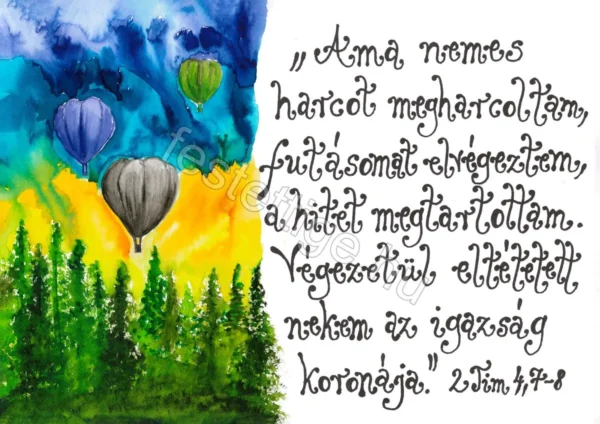 „Ama nemes
harcot megharcoltam,
futásomat elvégeztem,
a hitet megtartottam.
Végezetül eltétetett
nekem az igazság
koronája." 2 Tim 4,7-8
festettige.hu